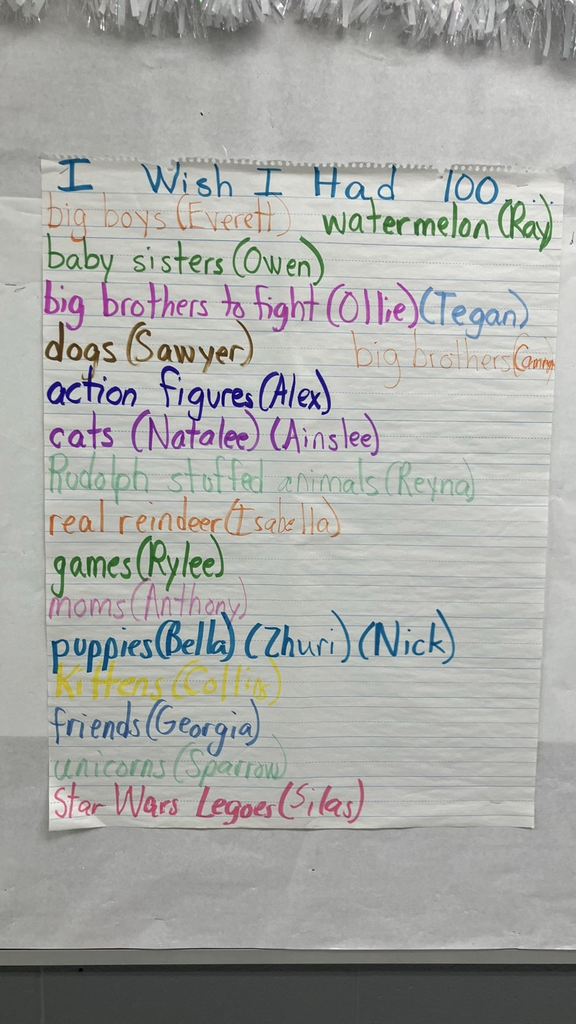 I Wish I Had 100...
big boys (Everett) watermelon (Ray)
baby sisters (Owen)
big brothers to fight (Ollie) (Tegan)
dogs (Sawyer) big brothers
action figures (Alex)
cats (Natalee) (Ainslee)
Rudolph stuffed animals (Reyna)
real reindeer (Isabella)
games (Rylee)
moms (Anthony)
puppies (Bella) (Zhuri) (Nick)
Kittens (Collins)
friends (Georgia)
unicorns (Sparrow)
Star Wars Legoes (Silas)